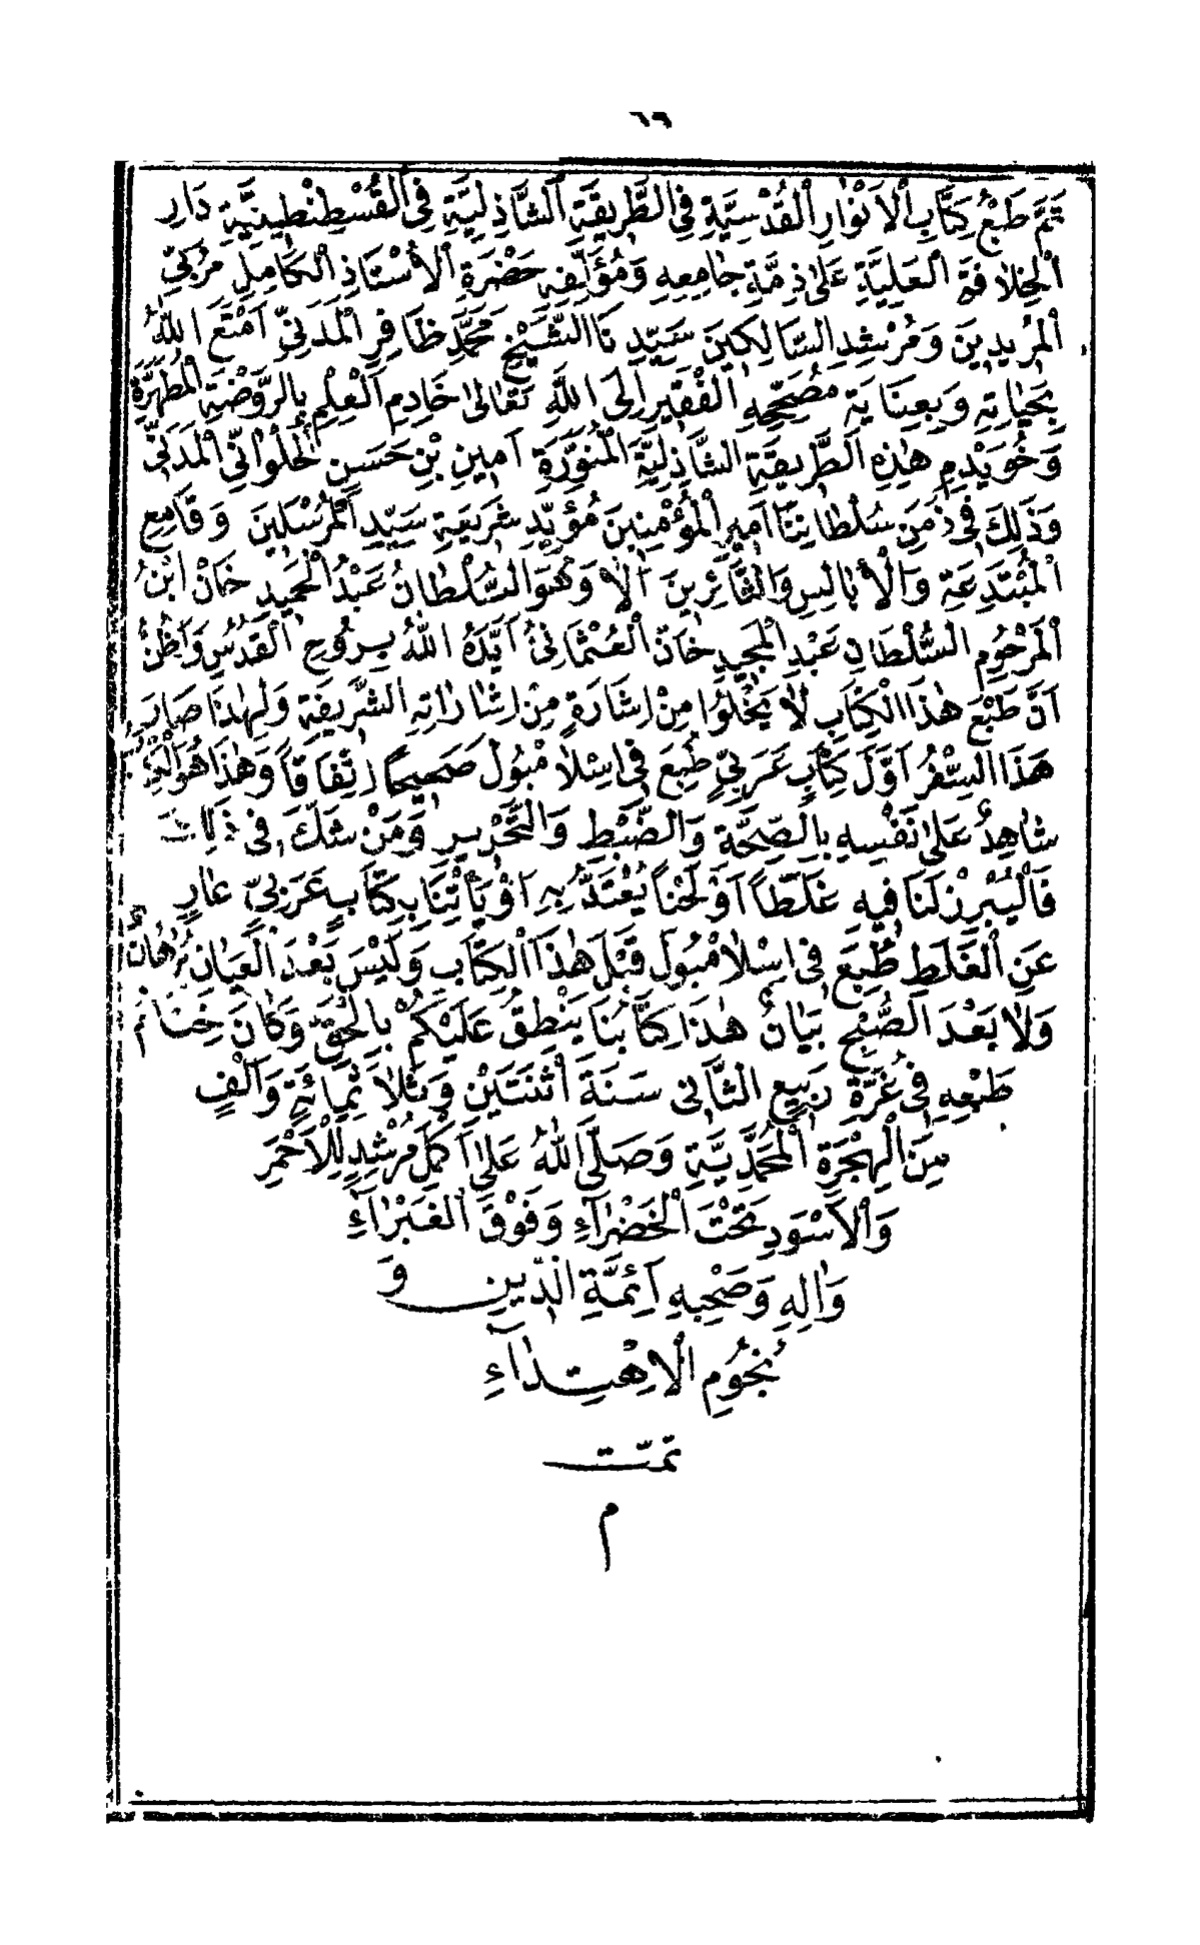 ٦٩
تَمَّ طَبْعُ كِتَابِ اْلاَنْوَارِ الْقُدْسِيَّةِ فِى الطَّرِيقَةِ الشَّاذِلِيَّةِ فِى الْقُسْطِنْطِينِيَّةِ دَارِ
الْخِلاَفَةِ الْعَلِيَّةِ عَلىٰ ذِمَّةِ جَامِعِهِ وَمُؤَلِّفِهِ حَضْرَةِ الْأُسْتَاذِ الْكَامِلِ مُرَبِّى
الْمُرِيدِينَ وَمُرْشِدِ السَّالِكِينَ سَيِّدِنَا الشَّيْخِ مُحَمَّدْ ظَافِرِ الْمَدَنِىِّ اَمْتَعَ اللّٰهُ
بِحَيَاتِهِ وَبِعِنَايَةِ مُصَحِّحِهِ الْفَقِيرِ اِلَى اللّٰهِ تَعَالىٰ خَادِمِ الْعِلْمِ بِالرَّوْضَةِ الْمُطَهَّرَةِ
وَخُوَيْدِمِ هٰذِهِ الطَّرِيقَةِ الشَّاذِلِيَّةِ الْمُنَوَّرَةِ اَمِينِ بْنِ حَسَنِ الْحُلْوَانِّى الْمَدَنِّى
وَذٰلِكَ فِى زَمَنِ سُلْطَانِنَا اَمِيرِ الْمُؤْمِنِينَ مُؤَيِّدِ شَرِيعَةِ سَيِّدِ الْمُرْسَلِينَ وَقَامِعِ
الْمُبْتَدِعَةِ وَالْأَبَالِسِ وَالثَّائِرِينَ اَلاَ وَهُوَ السُّلْطَانُ عَبْدُ الْحَمِيدِ خَانْ ابْنُ
الْمَرْحُومِ السُّلْطَانِ عَبْدِ الْمَجِيدِ خَانَ الْعُثْمَانِىُّ اَيَّدَهُ اللّٰهُ بِرُوحِ الْقُدُسِ وَاَظُنُّ
اَنَّ طَبْعَ هٰذَا الْكِتَابِ لاَ يَخْلُوا مِنْ اِشَارَةٍ مِنْ اِشَارَاتِهِ الشَّرِيفَةِ وَلِهٰذَا صَارَ
هَذَا السِّفْرُ اَوَّلَ كِتَابٍ عَرَبِىٍّ طُبِعَ فِى اِسْلاَمْبُولَ صَحِيحًا اتِّفَاقًا وَهٰذَا هُوَ
شَاهِدٌ عَلىٰ نَفْسِهِ بِالصِّحَّةِ وَالضَّبْطِ وَالتَّحْرِيرِ وَمَنْ شَكَّ فِى ذٰلِكَ
فَالْيُبْرِزْ لَنَا فِيهِ غَلَطًا اَوْ لَحْنًا يُعْتَدُّ بِهِ اَوْ يَأْتِنَا بِكِتَابٍ عَرَبِىٍّ عَارٍ
عَنِ الْغَلَطِ طُبِعَ فِى اِسْلاَمْبُولَ قَبْلَ هٰذَا الْكِتَابِ وَلَيْسَ بَعْدَ الْعِيَانِ بُرْهَانٌ
وَلاَ بَعْدَ الصُّبْحِ بَيَانٌ هٰذَا كِتَابُنَا يَنْطِقُ عَلَيْكُمْ بِالْحَقِّ وَكَانَ خِتَامُ
طَبْعِهِ فِى غُرَّةِ رَبِيعِ الثَّانِى سَنَةَ اثْنَتَيْنِ وَثَلاَثِمِائَةٍ وَاَلْفٍ
مِنَ الْهِجْرَةِ الْمُحَمَّدِيَّةِ وَصَلَّى اللّٰهُ عَلىٰ اَكْمَلِ مُرْشِدٍ لِلْاَحْمَرِ
وَالْاَسْوَدِ تَحْتَ الْخَضْرَآءِ وَفَوْقَ الْغَبْرَآءِ
وَاٰلِهِ وَصَحْبِهِ اَئِمَّةِ الدِّينِ وَ
نُجُومِ الْاِهْتِدَآءِ
تمّت
م